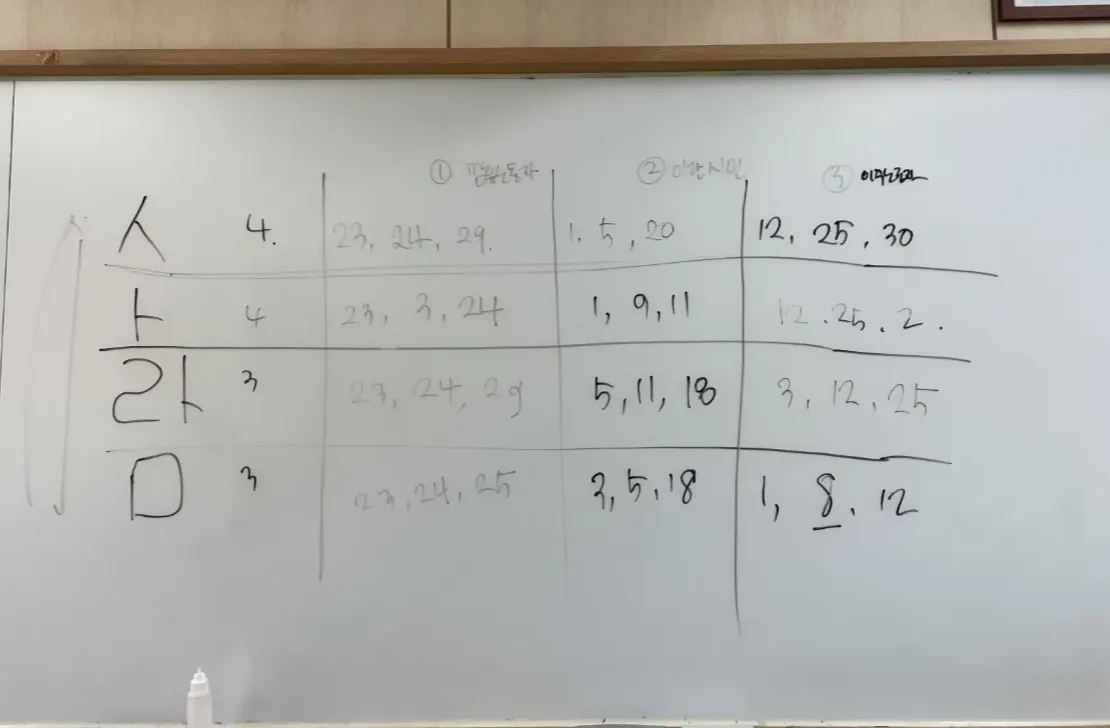 ① ② 이란시민 ③
ㅅ 4. 23, 24, 29. 1, 5, 20 12, 25, 30
ㅏ 4 23, 3, 24 1, 9, 11 12. 25. 2.
라 3 23, 24, 29 5, 11, 18 3, 12, 25
ㅁ 3 23, 24, 25 3, 5, 18 1, 8. 12